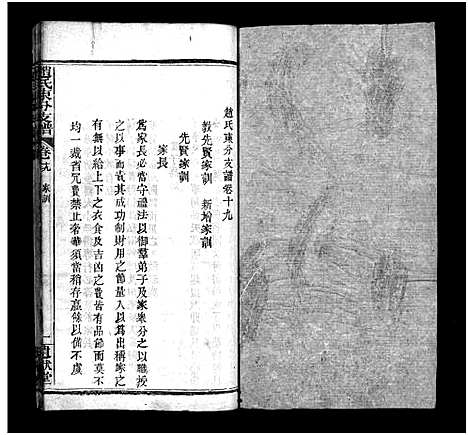 趙氏東分支譜卷十九
教先賢家訓　新增家訓
先賢家訓
家長
為家長必當守禮法以御羣弟子及家衆分之以職授
之以事而責其成功制財用之節量入以為出稱家之
有無以給上下之衣食及吉凶之費皆有品節而莫不
均一裁省冗費禁止奢華須當稍存贏餘以備不虞
趙氏東分支譜
卷十九
家訓
一
堂